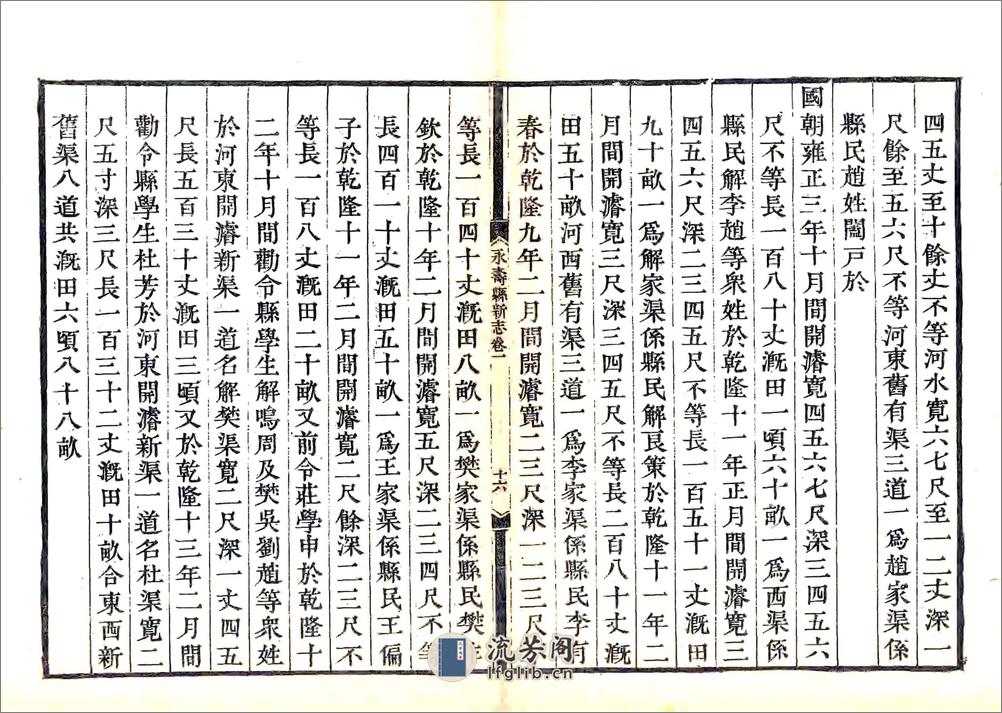 四五丈至十餘丈不等河水寬六七尺至一二丈深一
尺餘至五六尺不等河東舊有渠三道一爲趙家渠係
縣民趙姓闔戸於
國朝雍正三年十月間開濬寬四五六七尺深三四五六
尺不等長一百八十丈漑田一頃六十畝一爲西渠係
縣民解李趙等衆姓於乾隆十一年正月間開濬寬三
四五六尺深二三四五尺不等長一百五十一丈漑田
九十畝一爲解家渠係縣民解艮策於乾隆十一年二
月間開濬寬三尺深三四五尺不等長二百八十丈漑
田五十畝河西舊有渠三道一爲李家渠係縣民李有
春於乾隆九年二月間開濬寬二三尺深一二三尺不
永壽縣新志卷一
十六
等長一百四十丈漑田八畝一爲樊家渠係縣民樊生
欽於乾隆十年二月間開濬寬五尺深二三四尺不等
長四百一十丈漑田五十畝一爲王家渠係縣民王偏
子於乾隆十一年二月間開濬寬二尺餘深二三尺不
等長一百八丈漑田二十畝又前令莊學申於乾隆十
二年十月間勸令縣學生解鳴周及樊吳劉趙等衆姓
於河東開濬新渠一道名解樊渠寬二尺深一丈四五
尺長五百三十丈漑田三頃又於乾隆十三年二月間
勸令縣學生杜芳於河東開濬新渠一道名杜渠寬二
尺五寸深三尺長一百三十二丈漑田十畝合東西新
舊渠八道共漑田六頃八十八畝
流芳阁
lfglib.cn